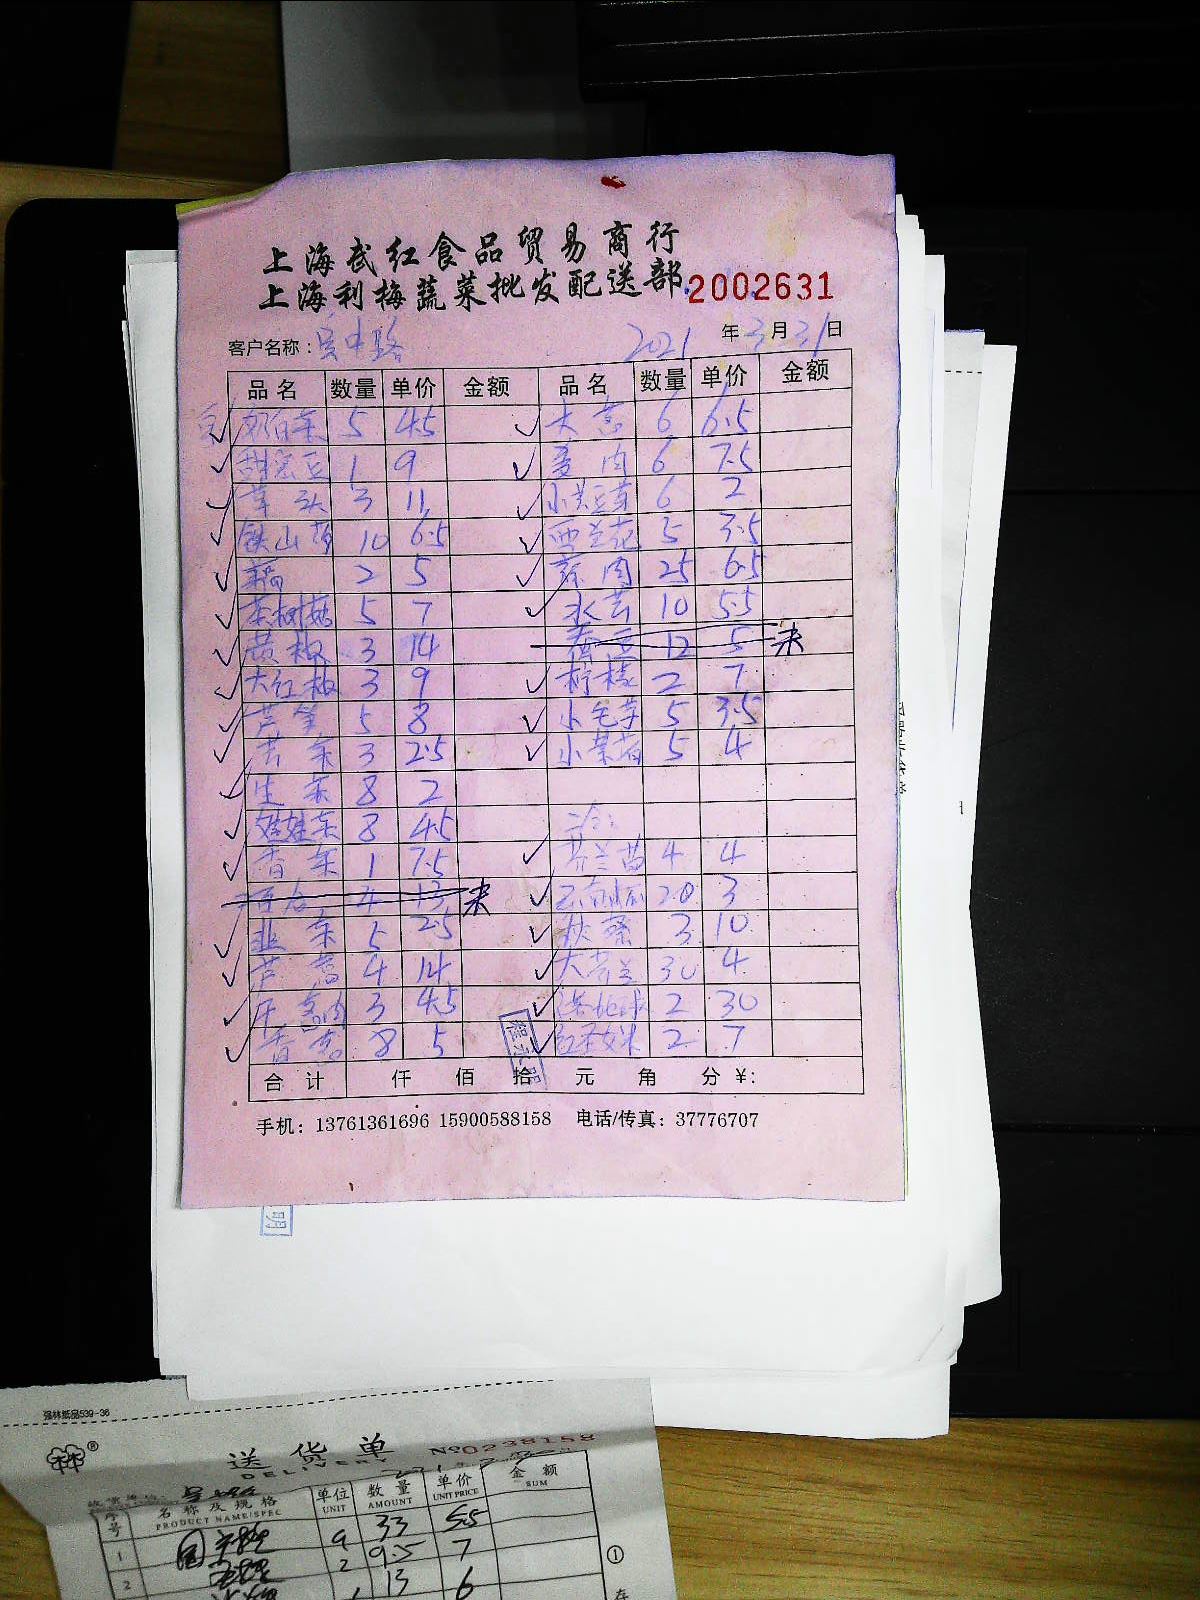 上海武红食品贸易商行
上海利梅蔬菜批发配送部 2002631
客户名称：吴中路 2021 年 3 月 31 日
品名 数量 单价 金额 品名 数量 单价 金额
奶白菜 5 4.5 大葱 6 6.5
甜宏豆 1 9 姜肉 6 7.5
芋头 3 11 小黄豆芽 6 2
铁山药 10 6.5 西兰花 5 3.5
2 5 蒜肉 25 6.5
茶树菇 5 7 水芹 10 5.5
黄椒 3 14 12 5 未
大红椒 3 9 柠檬 2 7
芦笋 5 8 小毛芋 5 3.5
芹菜 3 2.5 小黄荀 5 4
生菜 8 2
娃娃菜 8 4.5
香菜 1 7.5 芥兰苗 4 4
百合 4 13 未 20 3
韭菜 5 2.5 秋葵 3 10
芦蒿 4 14 大芥兰 30 4
3 4.5 2 30
香葱 8 5 2 7
合计 仟 佰 拾 元 角 分 ¥:
程永明
手机：13761361696 15900588158 电话/传真：37776707
明
强林纸品539-36
林®
送货单 №0238158
DELIVERY
序号 名称及规格 单位 数量 单价 金额
PRODUCT NAME/SPEC UNIT AMOUNT UNIT PRICE SUM
1 9 33 5.5
2 2 9.5 7
13 6
①
存